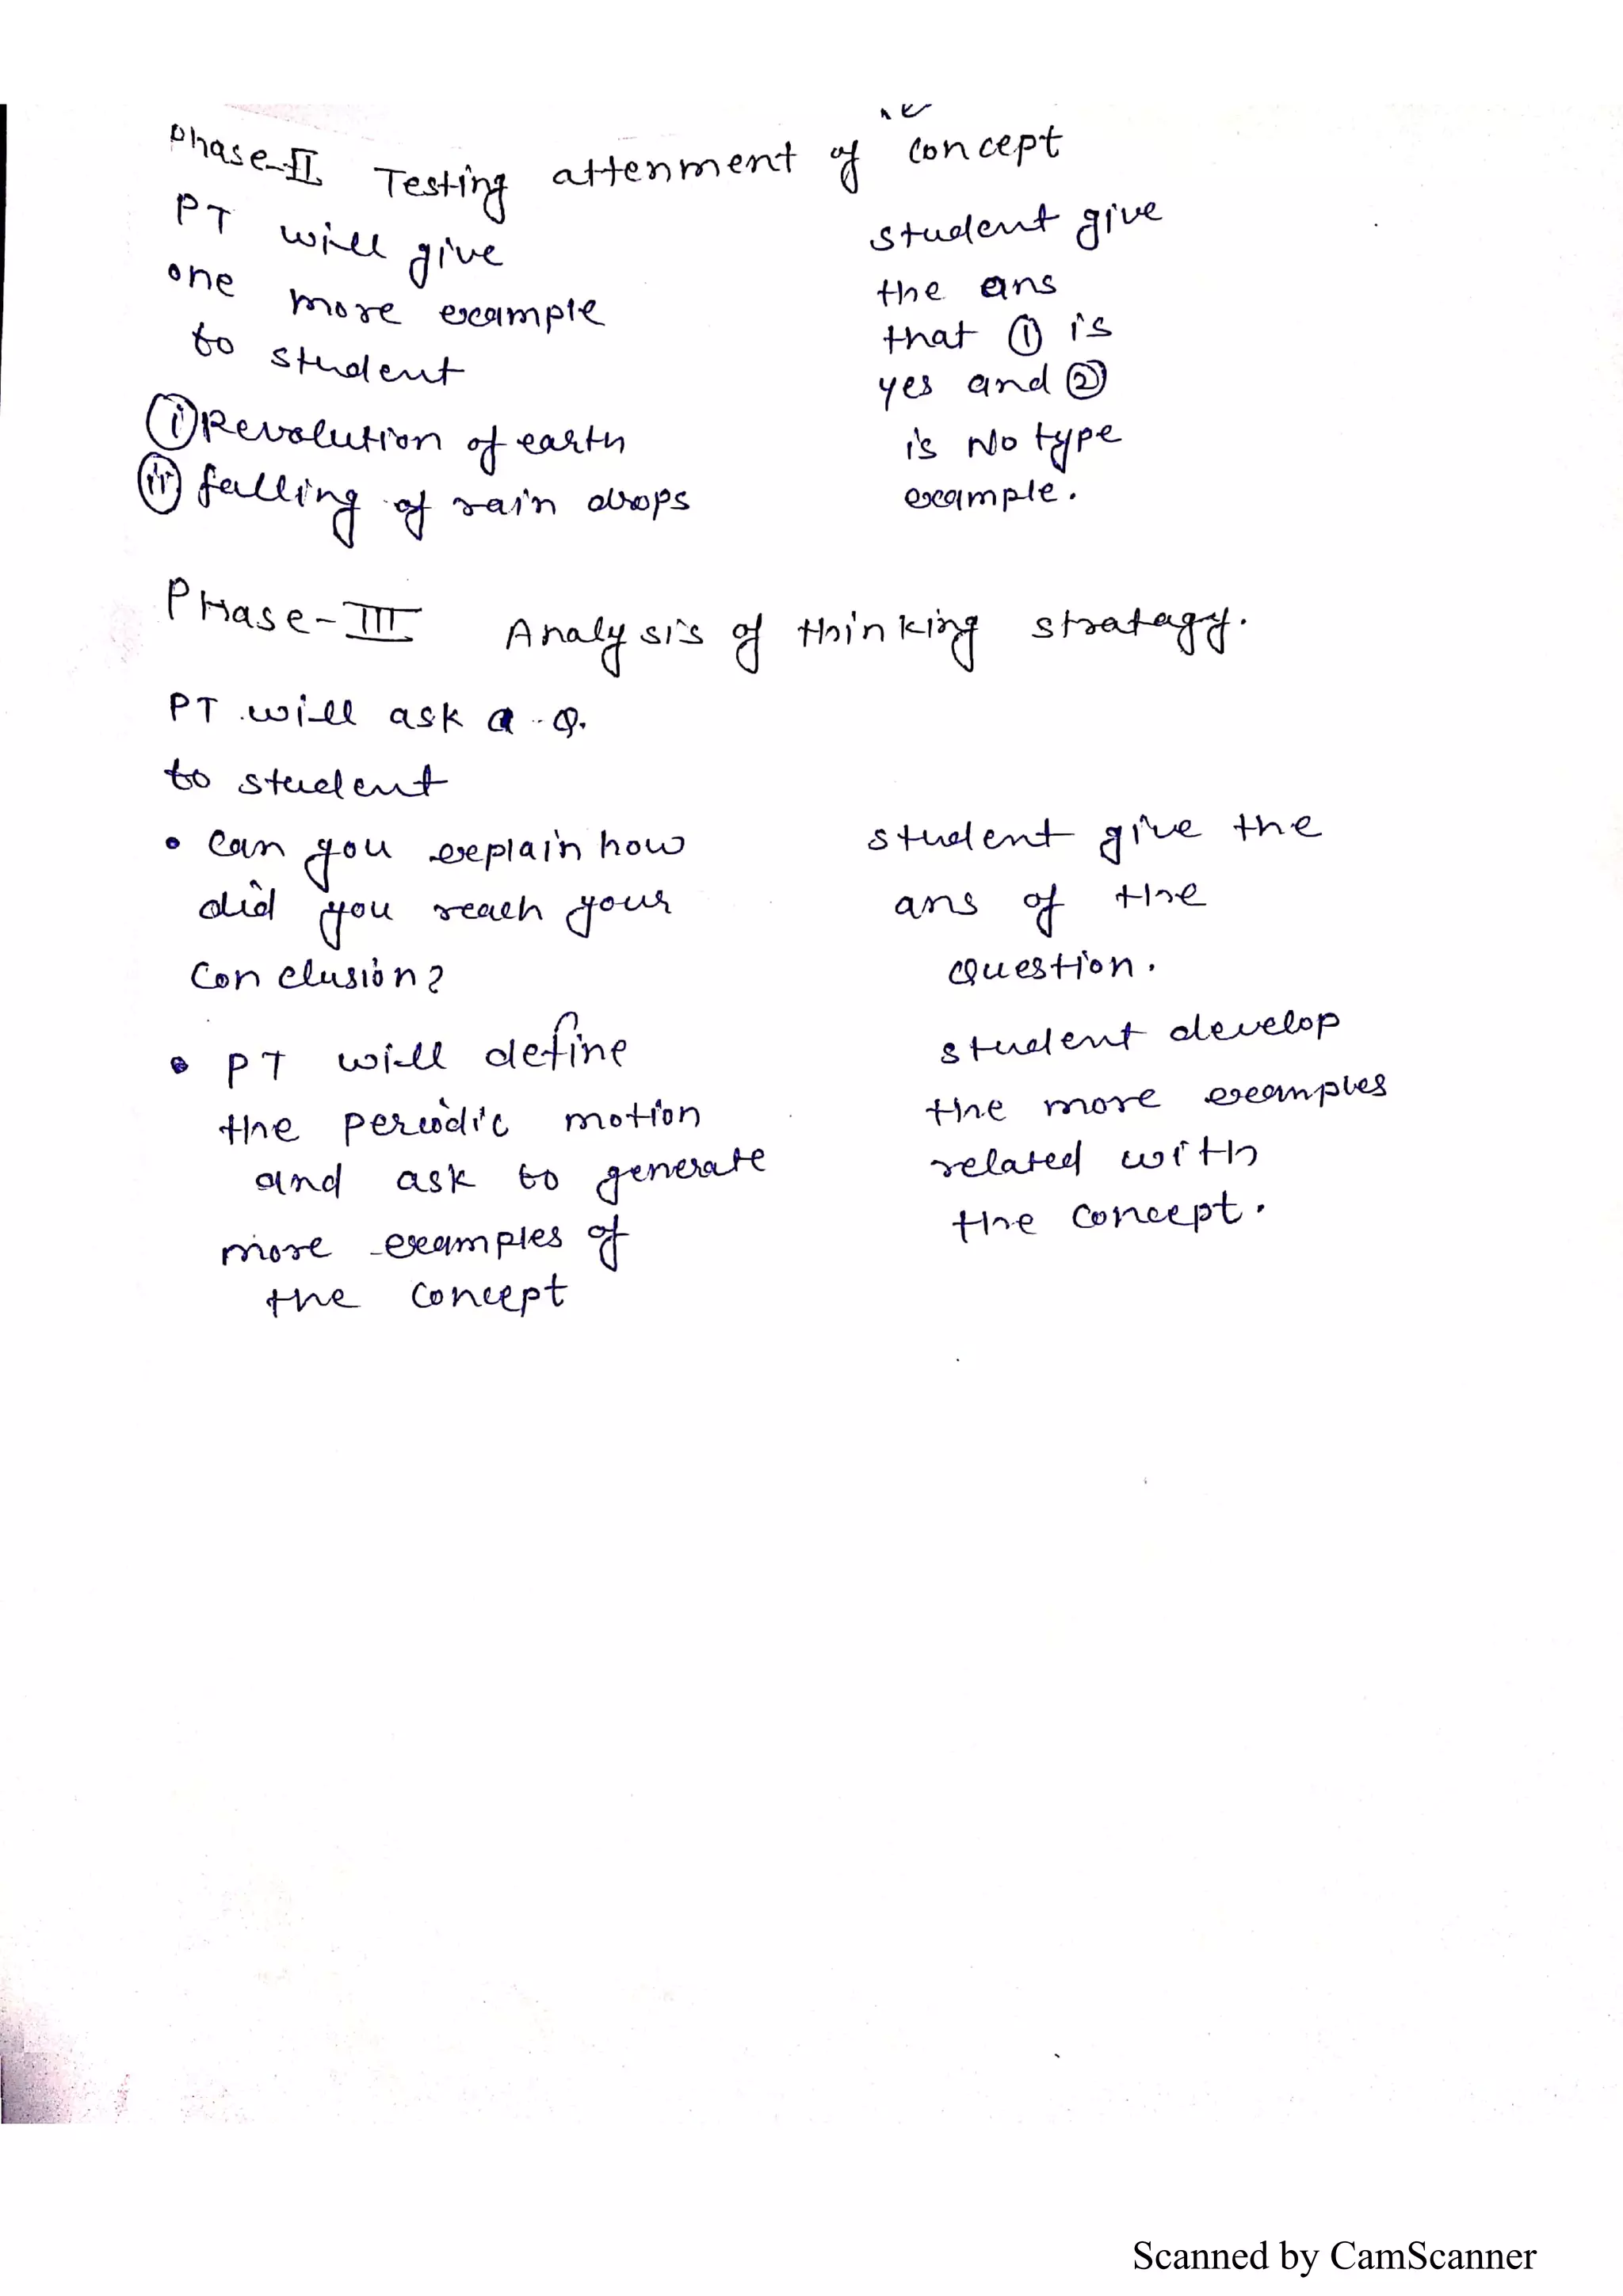 Phase-II Testing attenment of concept
PT will give
one more example
to student
(i) Revolution of earth
(ii) falling of rain drops
student give
the ans
that ① is
yes and ②
is No type
example.
Phase-III Analysis of thinking stratagy.
PT will ask a Q.
to student
• Can you explain how
did you reach your
Conclusion?
student give the
ans of the
Question.
• PT will define
the periodic motion
and ask to generate
more examples of
the concept
student develop
the more examples
related with
the concept.
Scanned by CamScanner